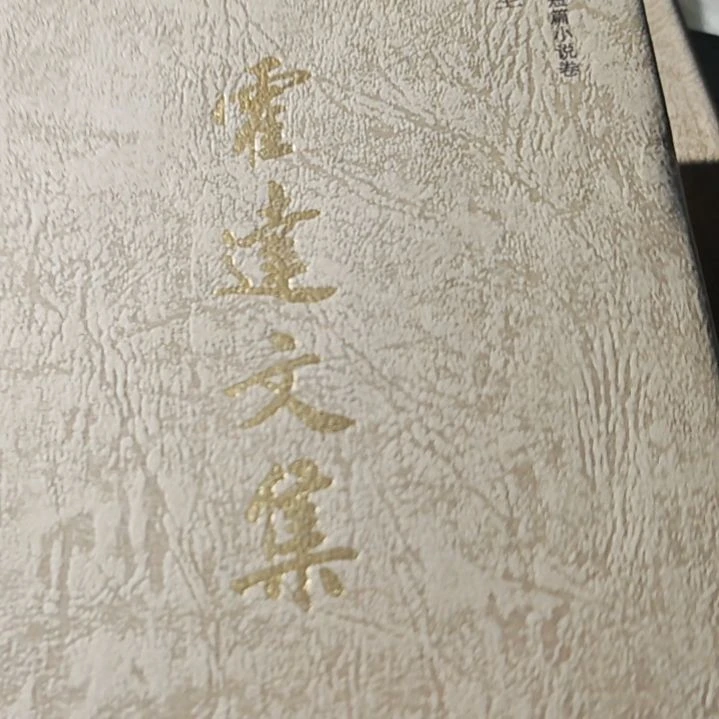 霍達文集
短篇小说卷